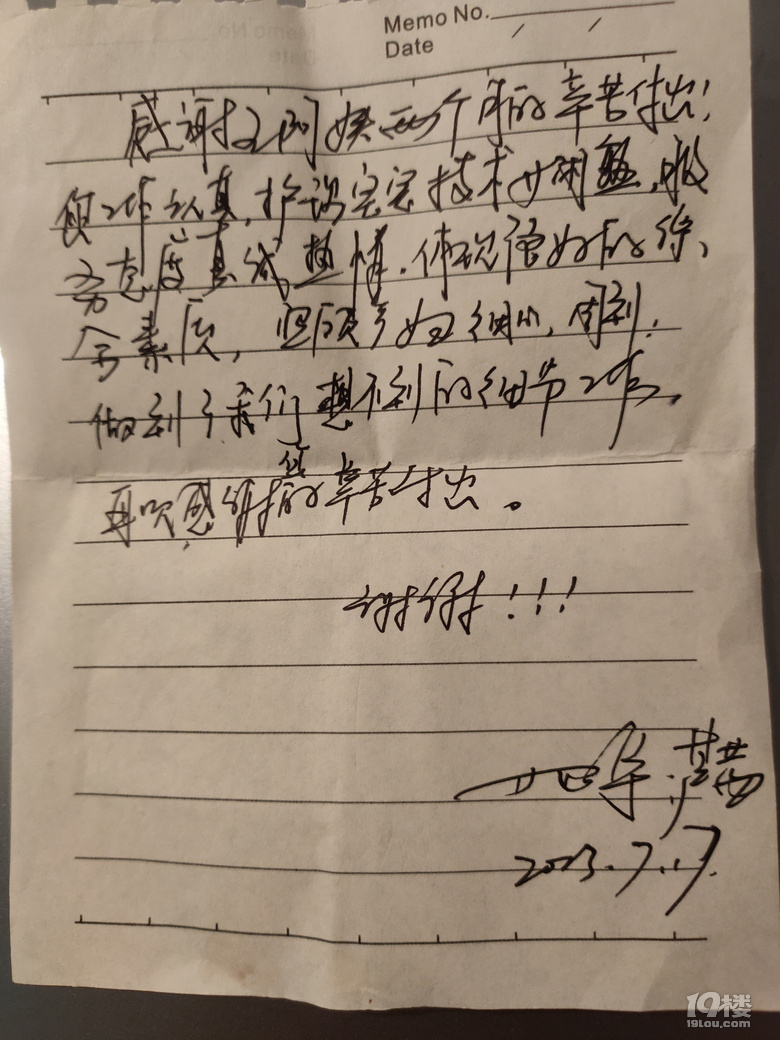 Memo No.
Date / /
感谢王阿姨两个月的辛苦付出！
她工作认真，护理宝宝技术娴熟，服
务态度真诚热情，体现很好的综
合素质，照顾产妇细心，周到，
做到了我们想不到的细节工作，
再次感谢您的辛苦付出。
谢谢！！！
2023.7.17.
19楼
19lou.com